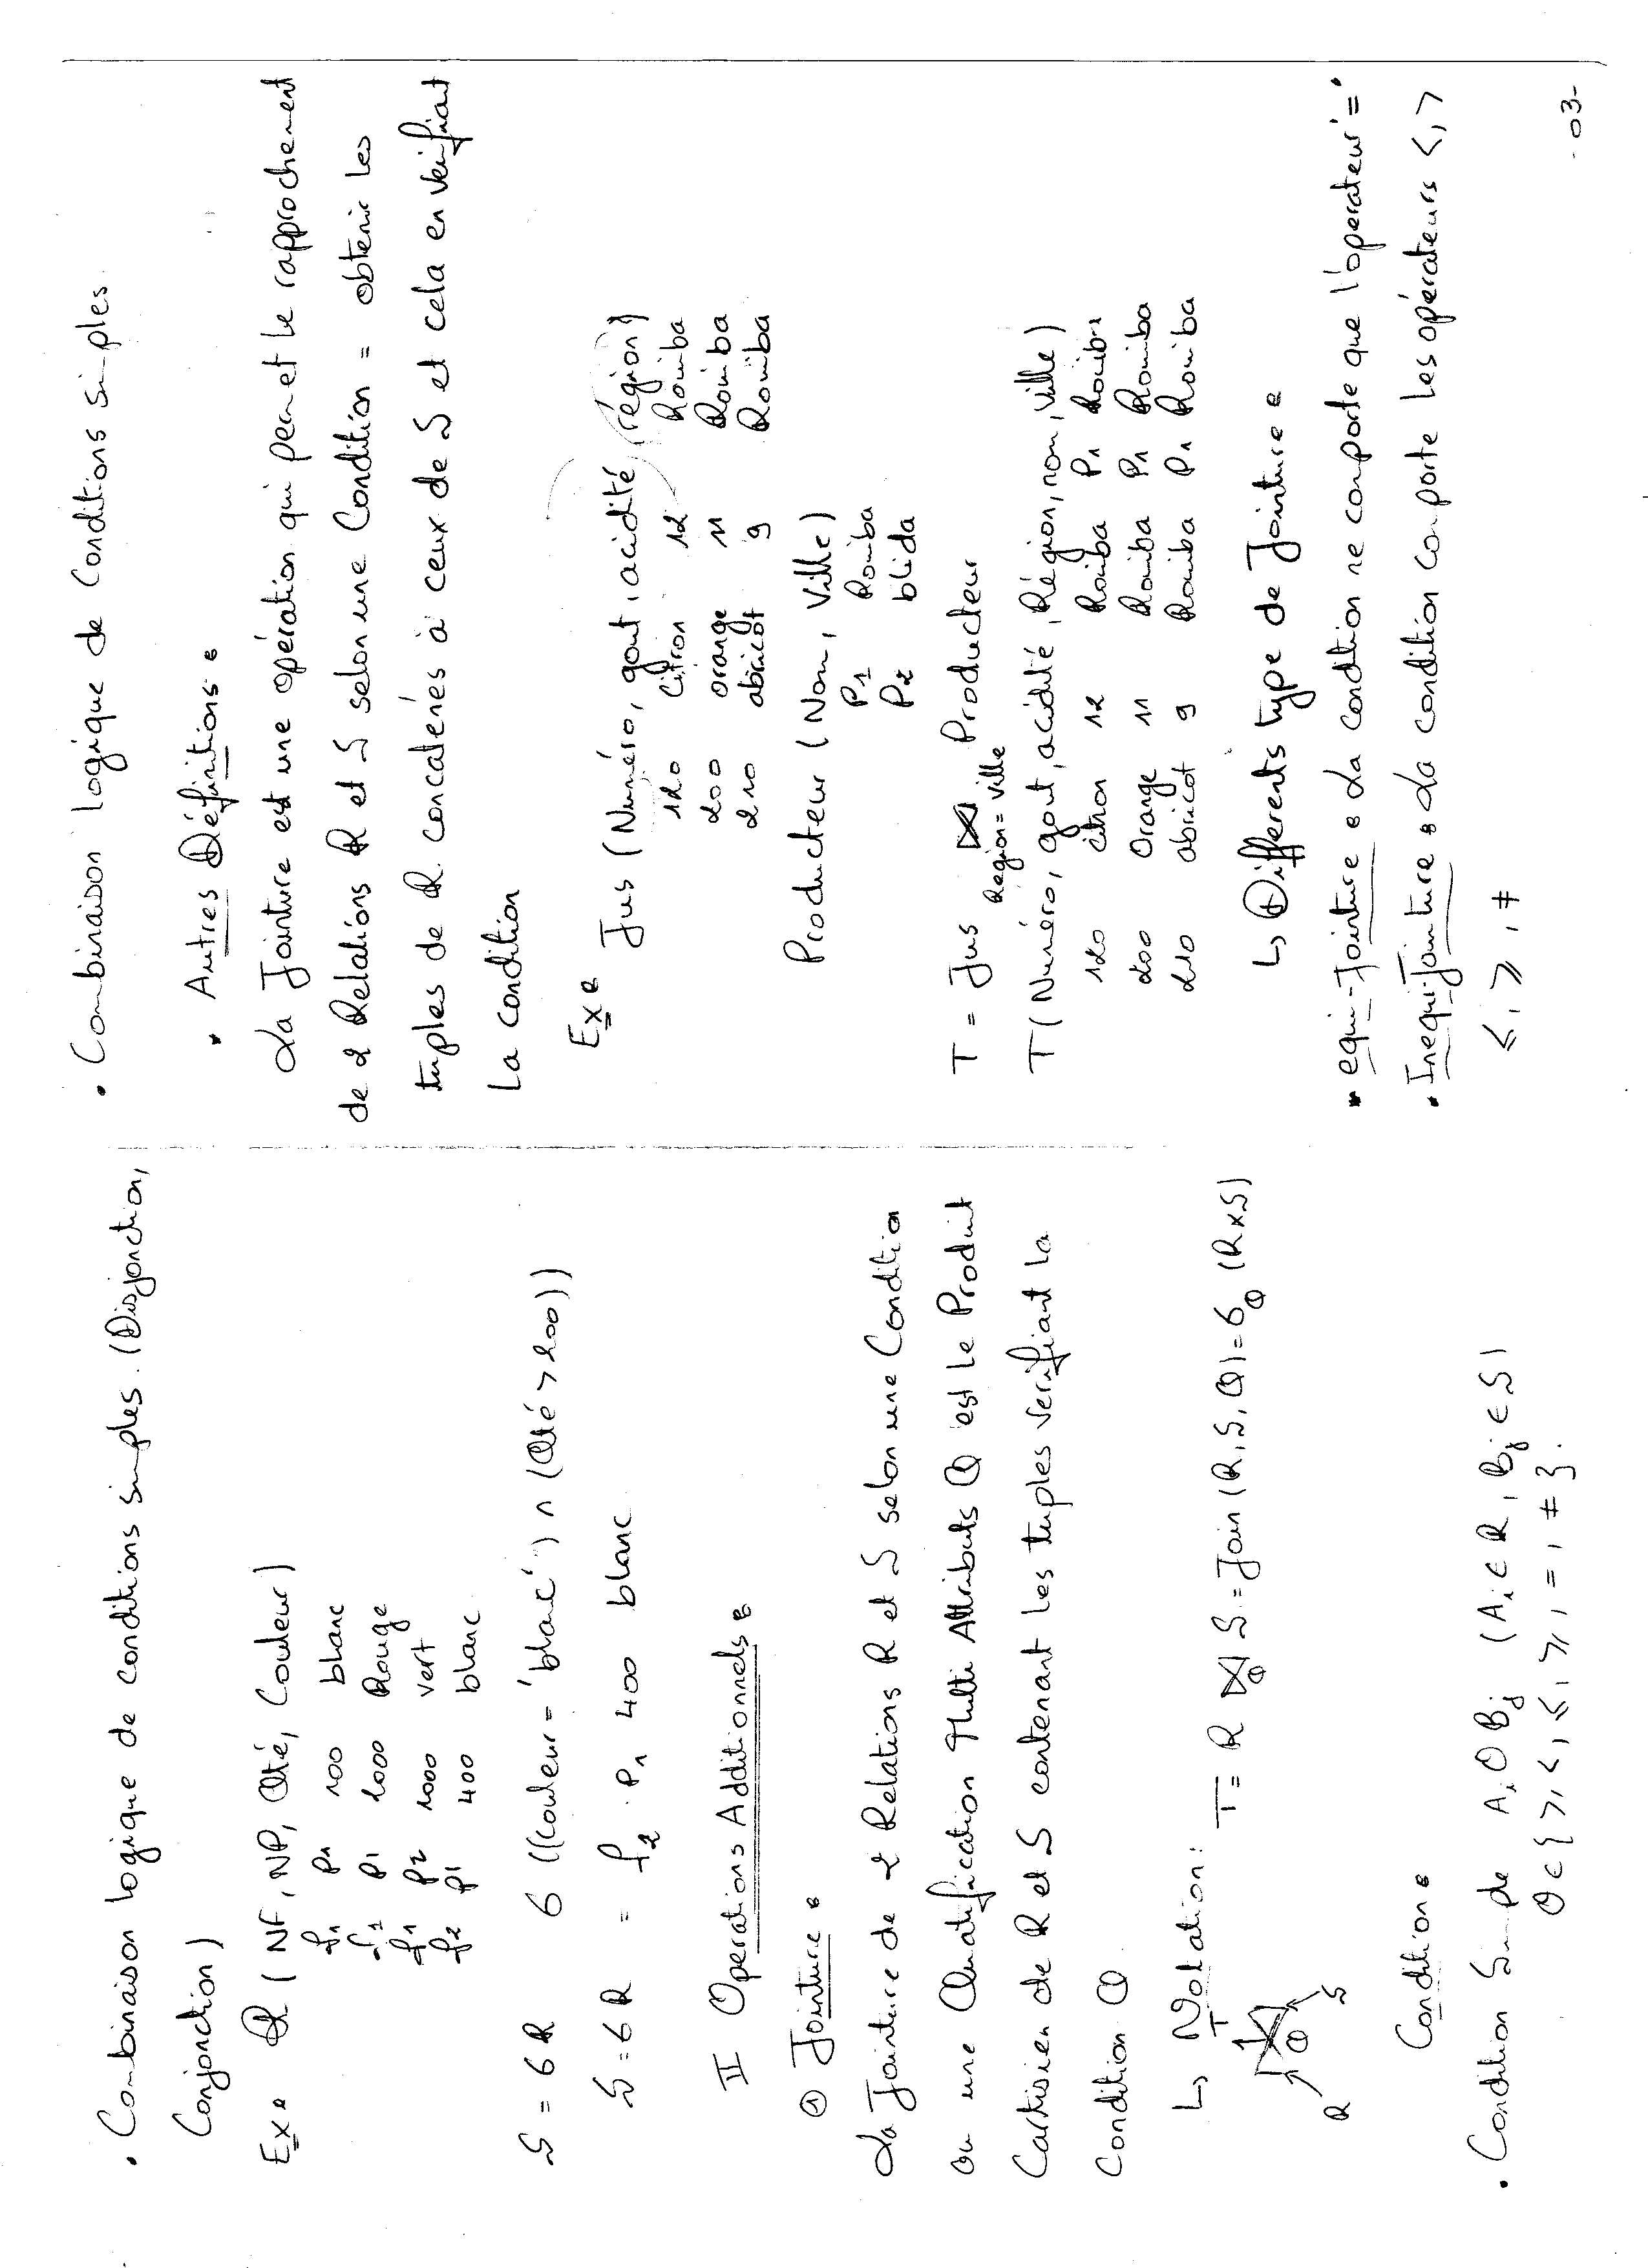 • Combinaison logique de conditions simples. (Disjonction,
Conjonction)
Ex: R (NF, NP, Qté, Couleur)
f1 P1 100 blanc
f2 P1 1000 Rouge
f1 P2 1000 vert
f2 P1 400 blanc
S = σR σ ((couleur = 'blanc') ∧ (Qté > 200))
S = σR = f2 P1 400 blanc
II Operations Additionnels :
① Jointure :
La Jointure de 2 Relations R et S selon une Condition
ou une Qualification Multi Attributs Q est le Produit
Cartisien de R et S contenant les tuples verifiant la
Condition Q
↳ Notation : T = R ⋈ S = Join (R, S, Q) = σ (R x S)
Q Q
T
Q
R S
Condition :
• Condition Simple Ai θ Bj (Ai ∈ R, Bj ∈ S)
θ ∈ { >, <, ≤, ≥, =, ≠ }.
• Combinaison logique de Conditions simples.
• Autres Définitions :
La Jointure est une opération qui permet le rapprochement
de 2 Relations R et S selon une Condition = obtenir les
tuples de R concaténés à ceux de S et cela en vérifiant
la condition
Ex : Jus (Numéro, gout, acidité, région)
120 Citron 12 Rouiba
200 orange 11 Rouiba
210 abricot 9 Rouiba
Producteur (Nom, Ville)
P1 Rouiba
P2 blida
T = Jus ⋈ Producteur
Region = ville
T (Numéro, gout, acidité, Région, nom, ville)
120 citron 12 Rouiba P1 Rouiba
200 Orange 11 Rouiba P1 Rouiba
210 abricot 9 Rouiba P1 Rouiba
↳ Differents type de Jointure :
• equi-Jointure : La condition ne comporte que l'operateur '='
• Inequi-Jointure : La condition comporte les opérateurs <, >
≤, ≥, ≠
- 03-